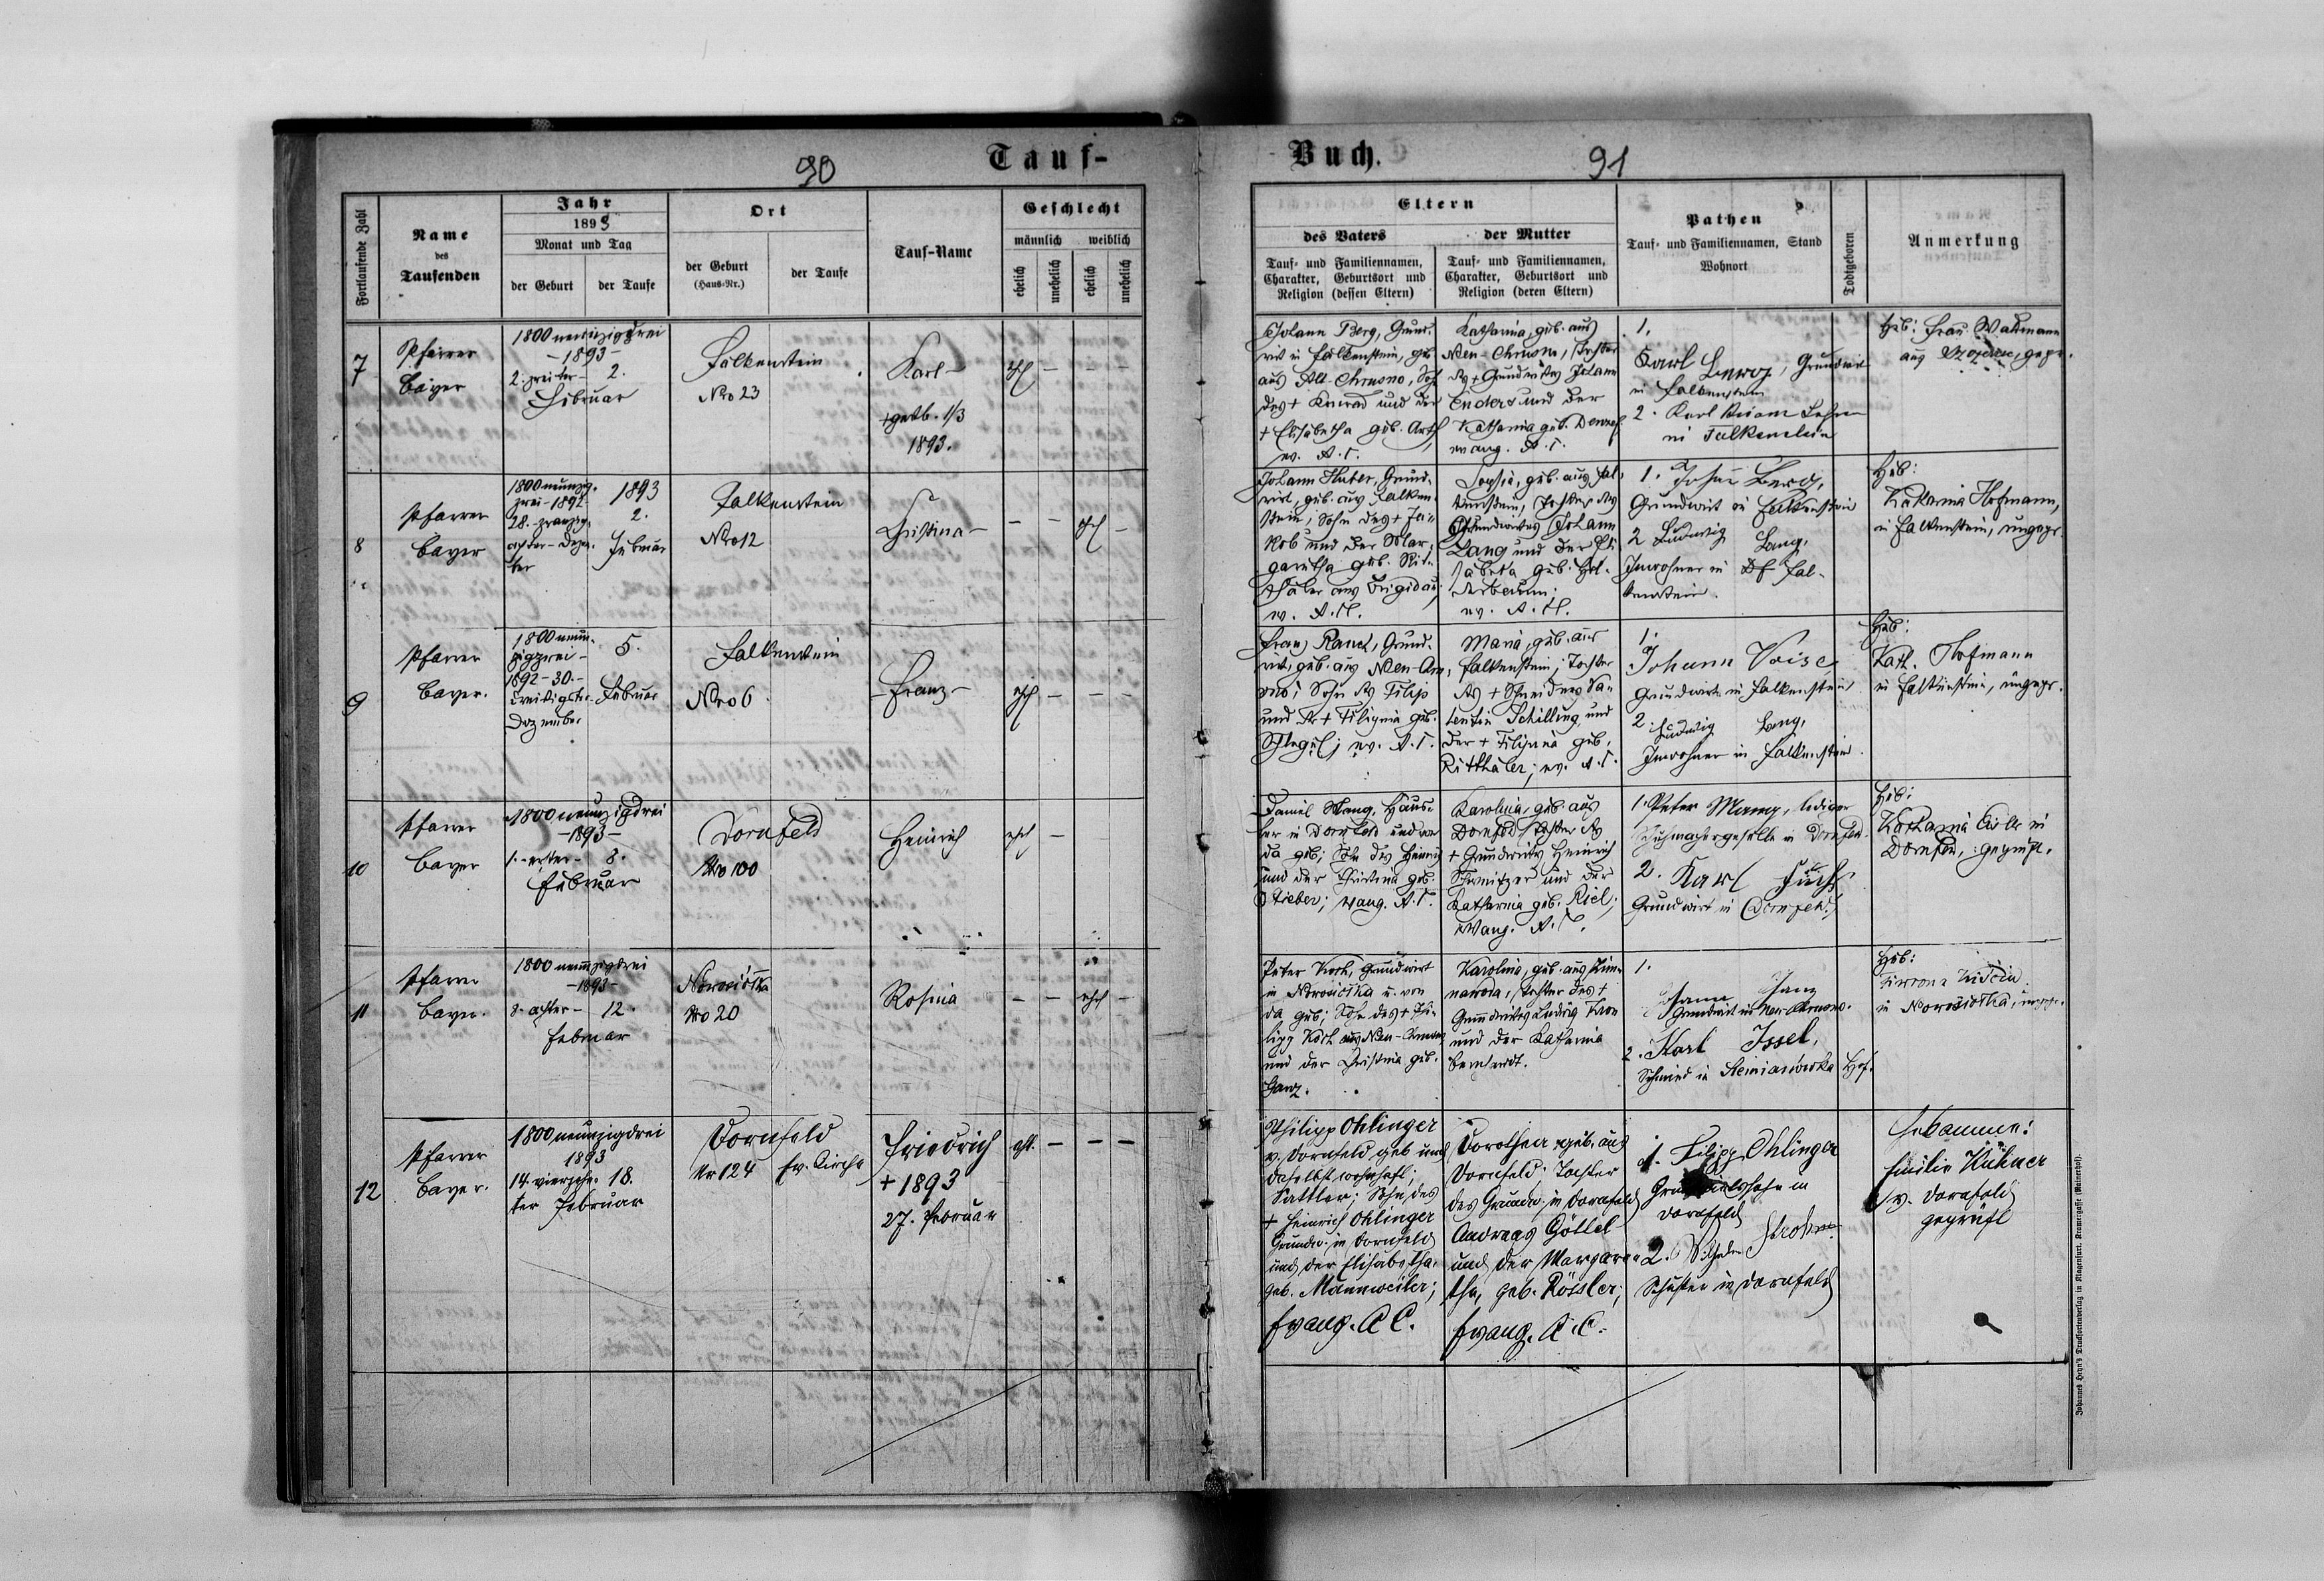 90
Tauf-
Fortlaufende Zahl
Name
des
Taufenden
Jahr
1893
Monat und Tag
der Geburt
der Taufe
Ort
der Geburt
(Haus-Nr.)
der Taufe
Tauf-Name
Geschlecht
männlich
weiblich
ehelich
unehelich
ehelich
unehelich
7
Pfarrer
Bayer
1800 neunzigdrei
-1893-
2. zweiter - 2.
Februar
Falkenstein
Nro 23
Karl -
+ gestb. 1/3
1893.
ehl - - -
8
Pfarrer
Bayer
1800 neunzig-
zwei - 1892
28. - zwanzig-
achter - Dezem-
ber
1893
2.
Februar
Falkenstein
Nro 12
Christina -
- - ehl -
9
Pfarrer
Bayer.
1800 neun-
zigzwei -
1892 - 30. -
Dreißigster -
Dezember
5.
Februar
Falkenstein
Nro 6.
- Franz -
ehl - - -
10
Pfarrer
Bayer
1800 neunzigdrei
-1893-
1. - erster - 8.
Februar
Dornfeld
Nro 100
Heinrich
ehl -
11
Pfarrer
Bayer.
1800 neunzigdrei
-1893-
8. achter - 12.
Februar
Nro 20
Rosina
- - ehl -
12
Pfarrer
Bayer.
1800 neunzigdrei
1893
14. vierzehn- 18.
ter Februar
Dornfeld
Nr 124 Ev. Kirche
Friedrich
+ 1893
27. Februar
ehl. - - -
Buch.
91
Eltern
des Vaters
Tauf- und Familiennamen,
Charakter, Geburtsort und
Religion (dessen Eltern)
der Mutter
Tauf- und Familiennamen,
Charakter, Geburtsort und
Religion (deren Eltern)
Pathen
Tauf- und Familiennamen, Stand
Wohnort
Todtgeboren
Anmerkung
Johann Berg, Grund-
wirt in Falkenstein, geb
aus Alt-Chrusno, Sohn
des + Konrad und der
+ Elisabetha geb. Arth
ev. A. C.
Katharina, geb. aus
Neu-Chrusno, Tochter
des + Grundwirtes Johann
Enders und der
Katharina geb.
evang. A. C.
1.
Karl Grundwirt
in Falkenstein
2. Karl
in Falkenstein
Heb: Frau Waltmann
aus gepr.
Johann Huber, Grund-
wirt, geb. aus Falken-
stein; Sohn des + Ja-
kob und der Mar-
garetha geb. Rit-
thaler aus Brigidau
ev. A. H.
Sophia, geb. aus Fal-
kenstein, Tochter des
Grundwirtes Johann
Lang und der Eli-
sabeta geb. Hol-
derbaum.
ev. A. H.
1. Johann Berg,
Grundwirt in Falkenstein
2 Ludwig Lang,
Inwohner in Fal-
kenstein.
Heb:
Katharina Hofmann,
in Falkenstein, ungepr.
Franz Ranck, Grund-
wirt, geb. aus Neu-
Sohn des Filip
und der + Filippina geb.
Schlegel; ev. A. C.
Maria, geb. aus
Falkenstein; Tochter
des + Schneiders Va-
lentin Schilling und
der + Filippina geb.
Ritthaler; ev. A. C.
1.
Johann Voise,
Grundwirt in Falkenstein
2. Ludwig Lang,
Inwohner in Falkenstein.
Heb:
Kath. Hofmann
in Falkenstein, ungepr.
Daniel Mang, Häus-
ler in Dornfeld und von
da geb; Sohn des Heinrich
und der Christina geb.
Stieber; evang. A. C.
Karolina, geb. aus
Dornfeld, Tochter des
+ Grundwirtes Heinrich
Schweitzer und der
Katharina geb. Riel;
evang. A. C.
1. Peter Mang, lediger
Schuhmachergeselle in Dornfeld.
2. Karl Fuchs
Grundwirt in Dornfeld
Heb:
Katharina in
Dornfeld, geprüft.
Peter Koch, Grundwirt
in Nowosiolka u. von
da geb; Sohn des + Phi-
lipp Koch aus Neu-Chrusno
und der Christina geb.
Ganz.
Karolina, geb. aus
Tochter des +
Grundwirtes Ludwig
und der Katharina
Bernhardt.
1.
Johann Ganz
Grundwirt in Neu Chrusno.
2. Karl Issel,
Schmied in
Heb:
in Nowosiolka, ungepr.
Philipp Ohlinger
v. Dornfeld geb und
daselbst wohnhaft;
Sattler; Sohn des
+ Heinrich Ohlinger
Grundw. in Dornfeld
und der Elisabetha.
geb. Mannweiler;
Evang. A C.
Dorothea geb. aus
Dornfeld; Tochter
des Grundw. in Dornfeld
Andreas Göttel
und der Margare-
tha, geb. Rössler;
Evang. A. C.
1. Filipp Ohlinger
Grundwirtssohn in
Dornfeld
2. Wilhelm Strohm
Schuster in Dornfeld
Hebamme:
Emilie Kühner
v. Dornfeld
geprüft
Johannes Heyn's Drucksortenverlag in Klagenfurt, Kramergasse (Rainerhof).